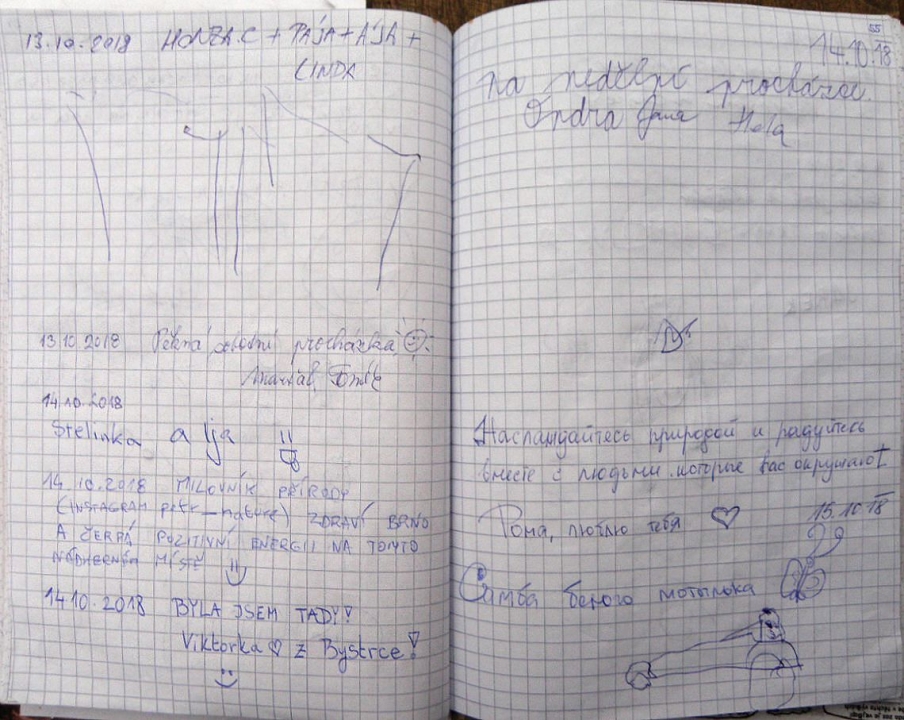 13.10.2018 HONZA.C + PÁJA + ÁJA +
LINDA
13.10.2018 Pěkná sobotní procházka
14.10.2018
Stelinka a Ija
14.10.2018 MILOVNÍK PŘÍRODY
(INSTAGRAM petr_nature) ZDRAVÍ BRNO
A ČERPÁ POZITIVNÍ ENERGII NA TOMTO
NÁDHERNÉM MÍSTĚ
14.10.2018 BYLA JSEM TADY!
Viktorka ♡ z Bystrce!
55
14.10.18
na nedělní procházce.
Ondra Jana
Наслаждайтесь природой и радуйтесь
вместе с людьми которые вас окружают
Рома, люблю тебя ♡ 15.10.18
Симба белого мотылька